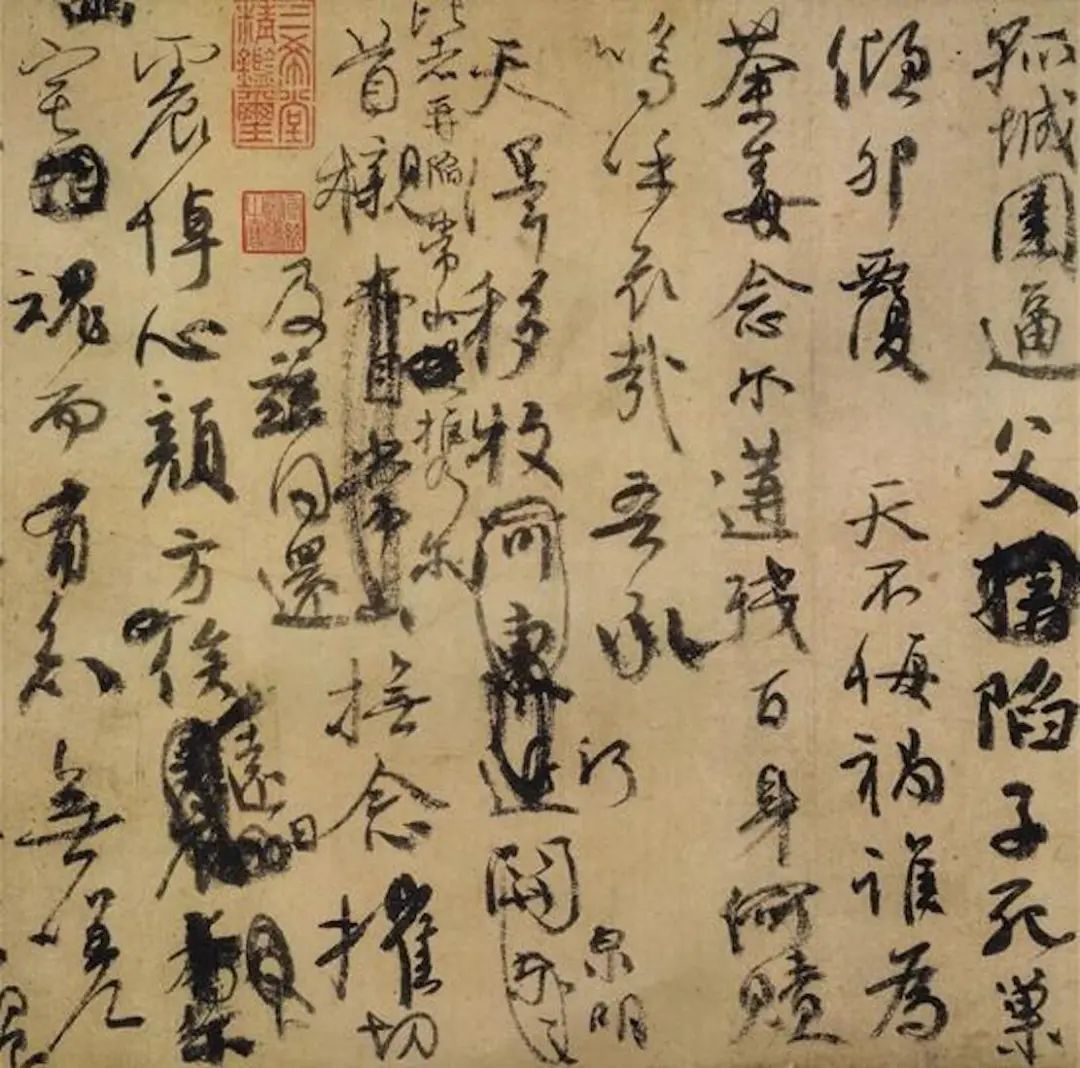 孤城圍逼父陷子死巢
傾卵覆天不悔禍誰為
荼毒念爾遘殘百身何贖
嗚呼哀哉吾承
泉明
天澤移牧河關
比者再陷常山
攜
首櫬
及茲同還
撫念摧切
震悼心顏方俟
遠日
魂而有知無嗟
三希堂精鑑璽